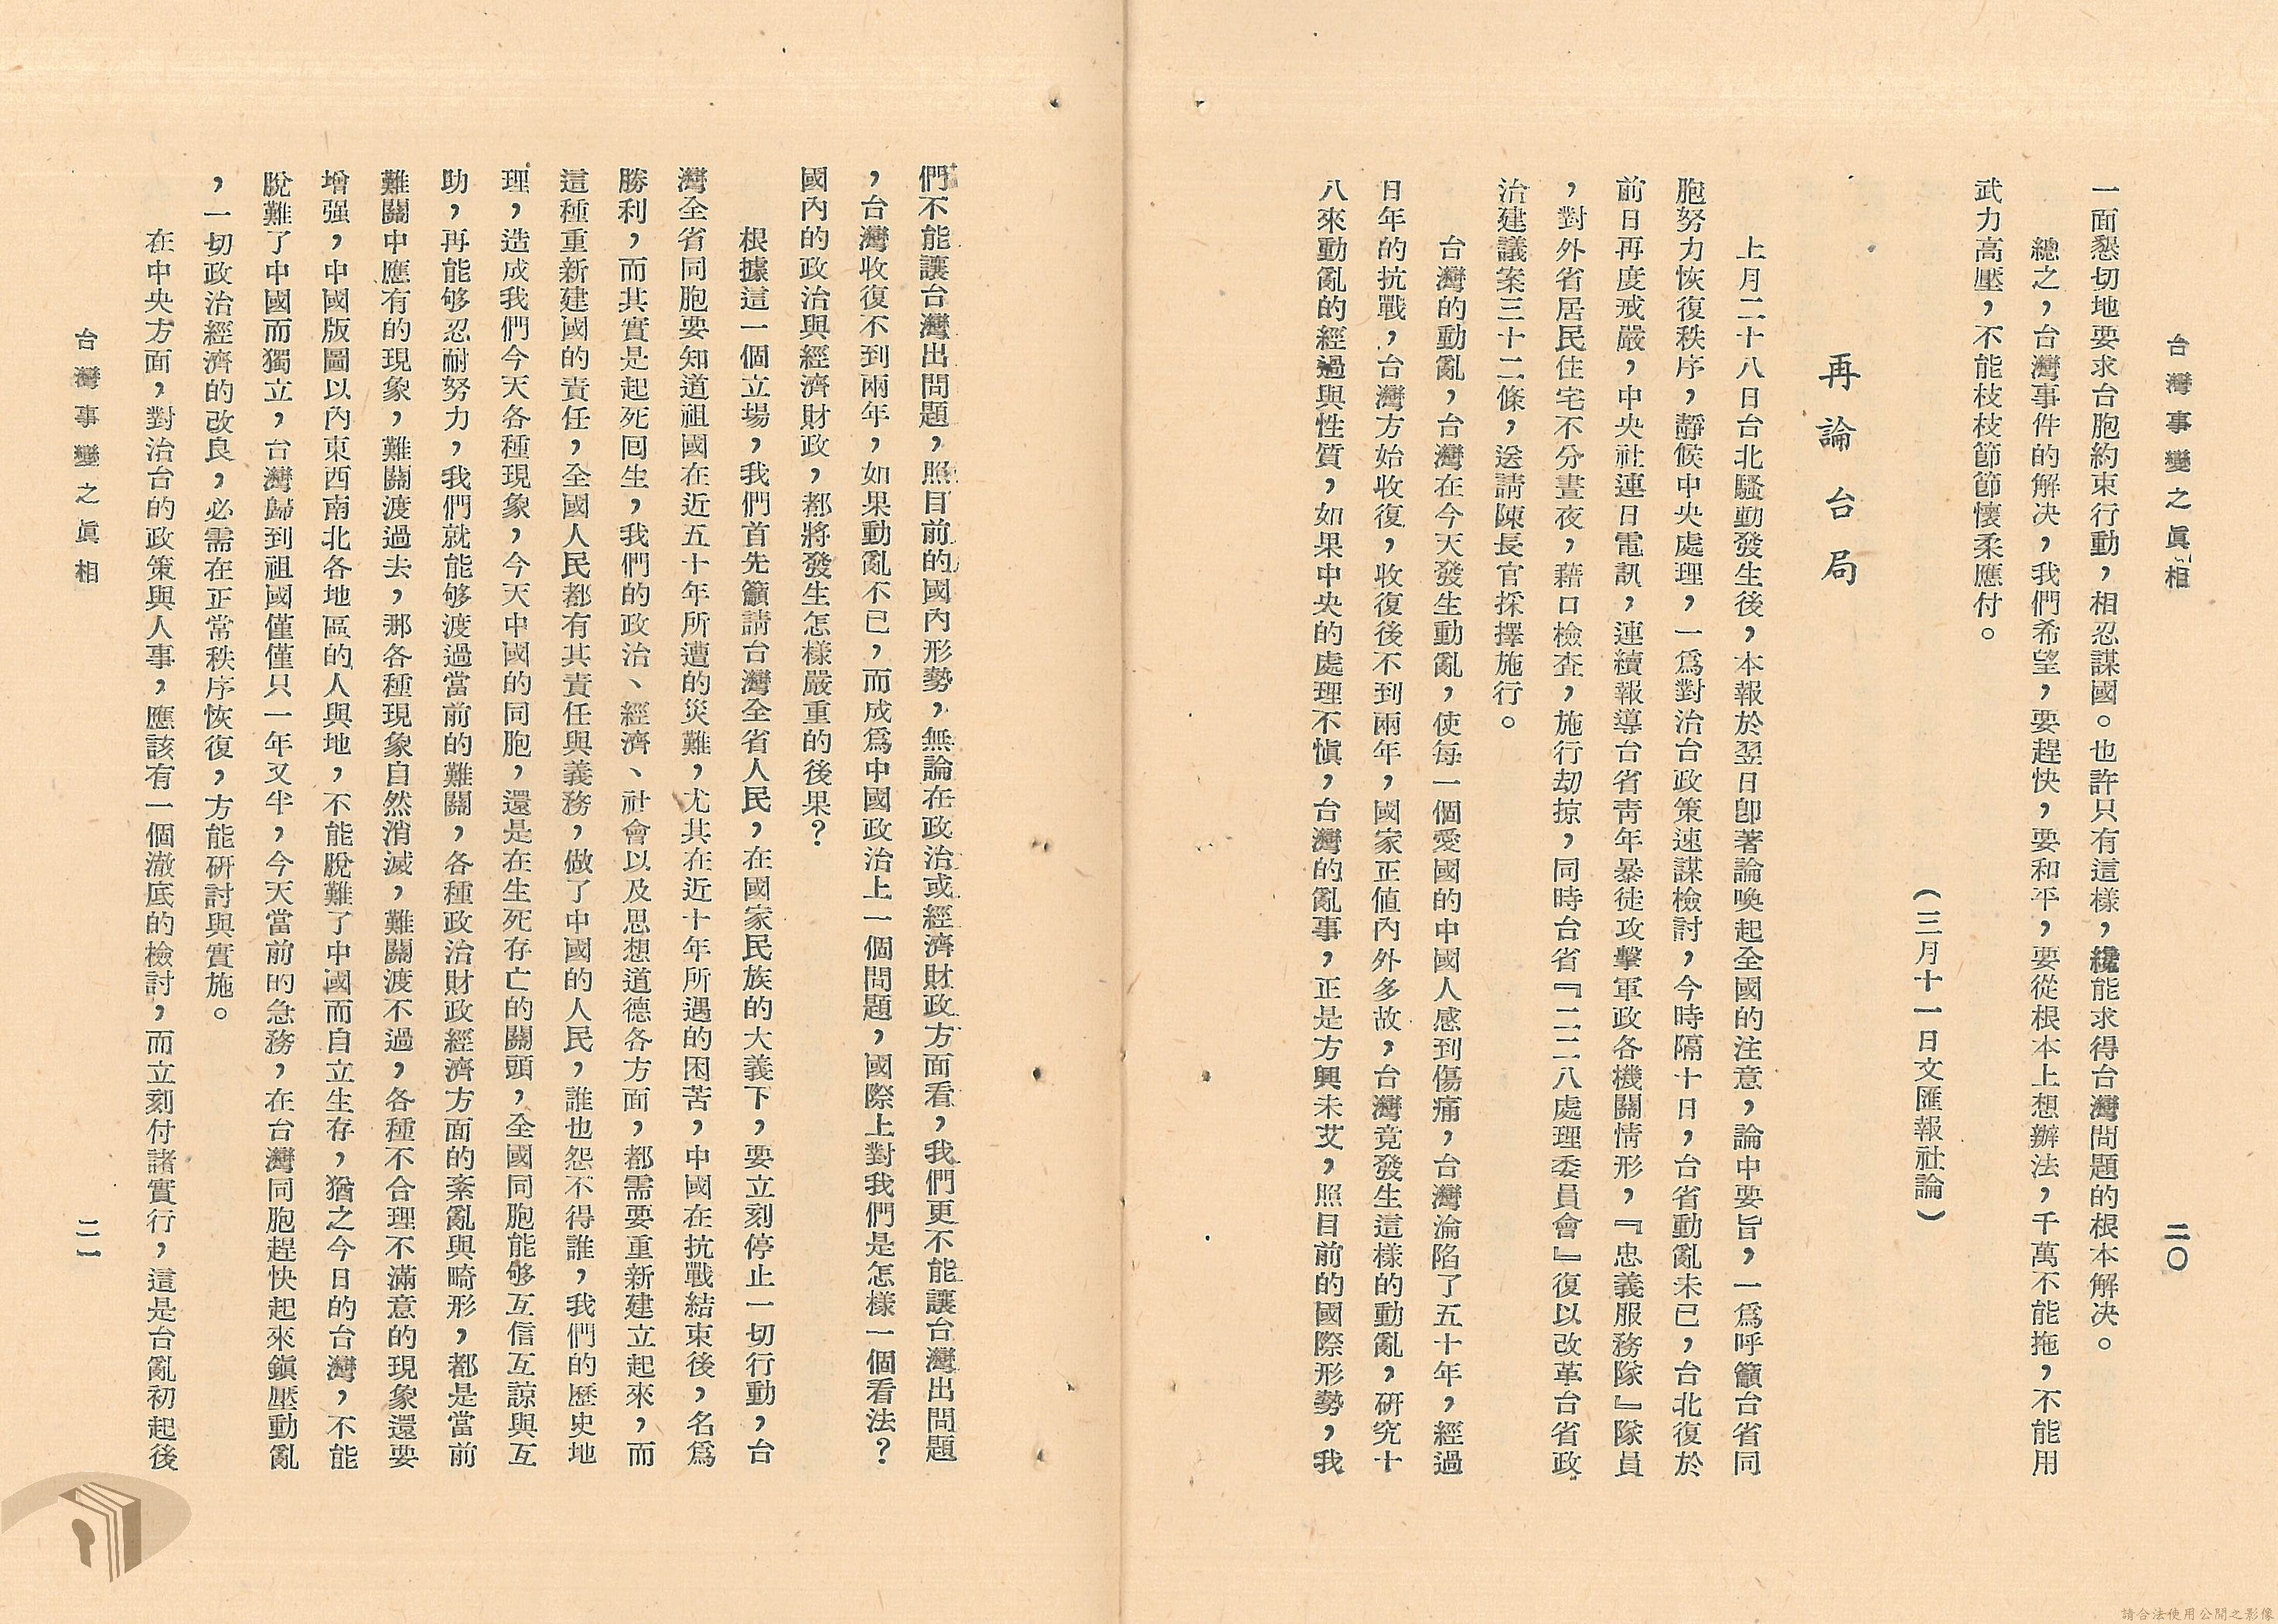 台灣事變之眞相
二〇
一面懇切地要求台胞約束行動，相忍謀國。也許只有這樣，纔能求得台灣問題的根本解决。
總之，台灣事件的解决，我們希望，要趕快，要和平，要從根本上想辦法，千萬不能拖，不能用
武力高壓，不能枝枝節節懷柔應付。
（三月十一日文匯報社論）
再論台局
上月二十八日台北騷動發生後，本報於翌日卽著論喚起全國的注意，論中要旨，一爲呼籲台省同
胞努力恢復秩序，靜候中央處理，一爲對治台政策速謀檢討，今時隔十日，台省動亂未已，台北復於
前日再度戒嚴，中央社連日電訊，連續報導台省靑年暴徒攻擊軍政各機關情形，『忠義服務隊』隊員
，對外省居民住宅不分晝夜，藉口檢查，施行刧掠，同時台省『二二八處理委員會』復以改革台省政
治建議案三十二條，送請陳長官採擇施行。
台灣的動亂，台灣在今天發生動亂，使每一個愛國的中國人感到傷痛，台灣淪陷了五十年，經過
日年的抗戰，台灣方始收復，收復後不到兩年，國家正値內外多故，台灣竟發生這樣的動亂，研究十
八來動亂的經過與性質，如果中央的處理不愼，台灣的亂事，正是方興未艾，照目前的國際形勢，我
們不能讓台灣出問題，照目前的國內形勢，無論在政治或經濟財政方面看，我們更不能讓台灣出問題
，台灣收復不到兩年，如果動亂不已，而成爲中國政治上一個問題，國際上對我們是怎樣一個看法？
國內的政治與經濟財政，都將發生怎樣嚴重的後果？
根據這一個立場，我們首先籲請台灣全省人民，在國家民族的大義下，要立刻停止一切行動，台
灣全省同胞要知道祖國在近五十年所遭的災難，尤其在近十年所遇的困苦，中國在抗戰結束後，名爲
勝利，而其實是起死回生，我們的政治、經濟、社會以及思想道德各方面，都需要重新建立起來，而
這種重新建國的責任，全國人民都有其責任與義務，做了中國的人民，誰也怨不得誰，我們的歷史地
理，造成我們今天各種現象，今天中國的同胞，還是在生死存亡的關頭，全國同胞能够互信互諒與互
助，再能够忍耐努力，我們就能够渡過當前的難關，各種政治財政經濟方面的紊亂與畸形，都是當前
難關中應有的現象，難關渡過去，那各種現象自然消滅，難關渡不過，各種不合理不滿意的現象還要
增强，中國版圖以內東西南北各地區的人與地，不能脫難了中國而自立生存，猶之今日的台灣，不能
脫難了中國而獨立，台灣歸到祖國僅僅只一年又半，今天當前的急務，在台灣同胞趕快起來鎭壓動亂
，一切政治經濟的改良，必需在正常秩序恢復，方能研討與實施。
在中央方面，對治台的政策與人事，應該有一個澈底的檢討，而立刻付諸實行，這是台亂初起後
台灣事變之眞相
二一
請合法使用公開之影像